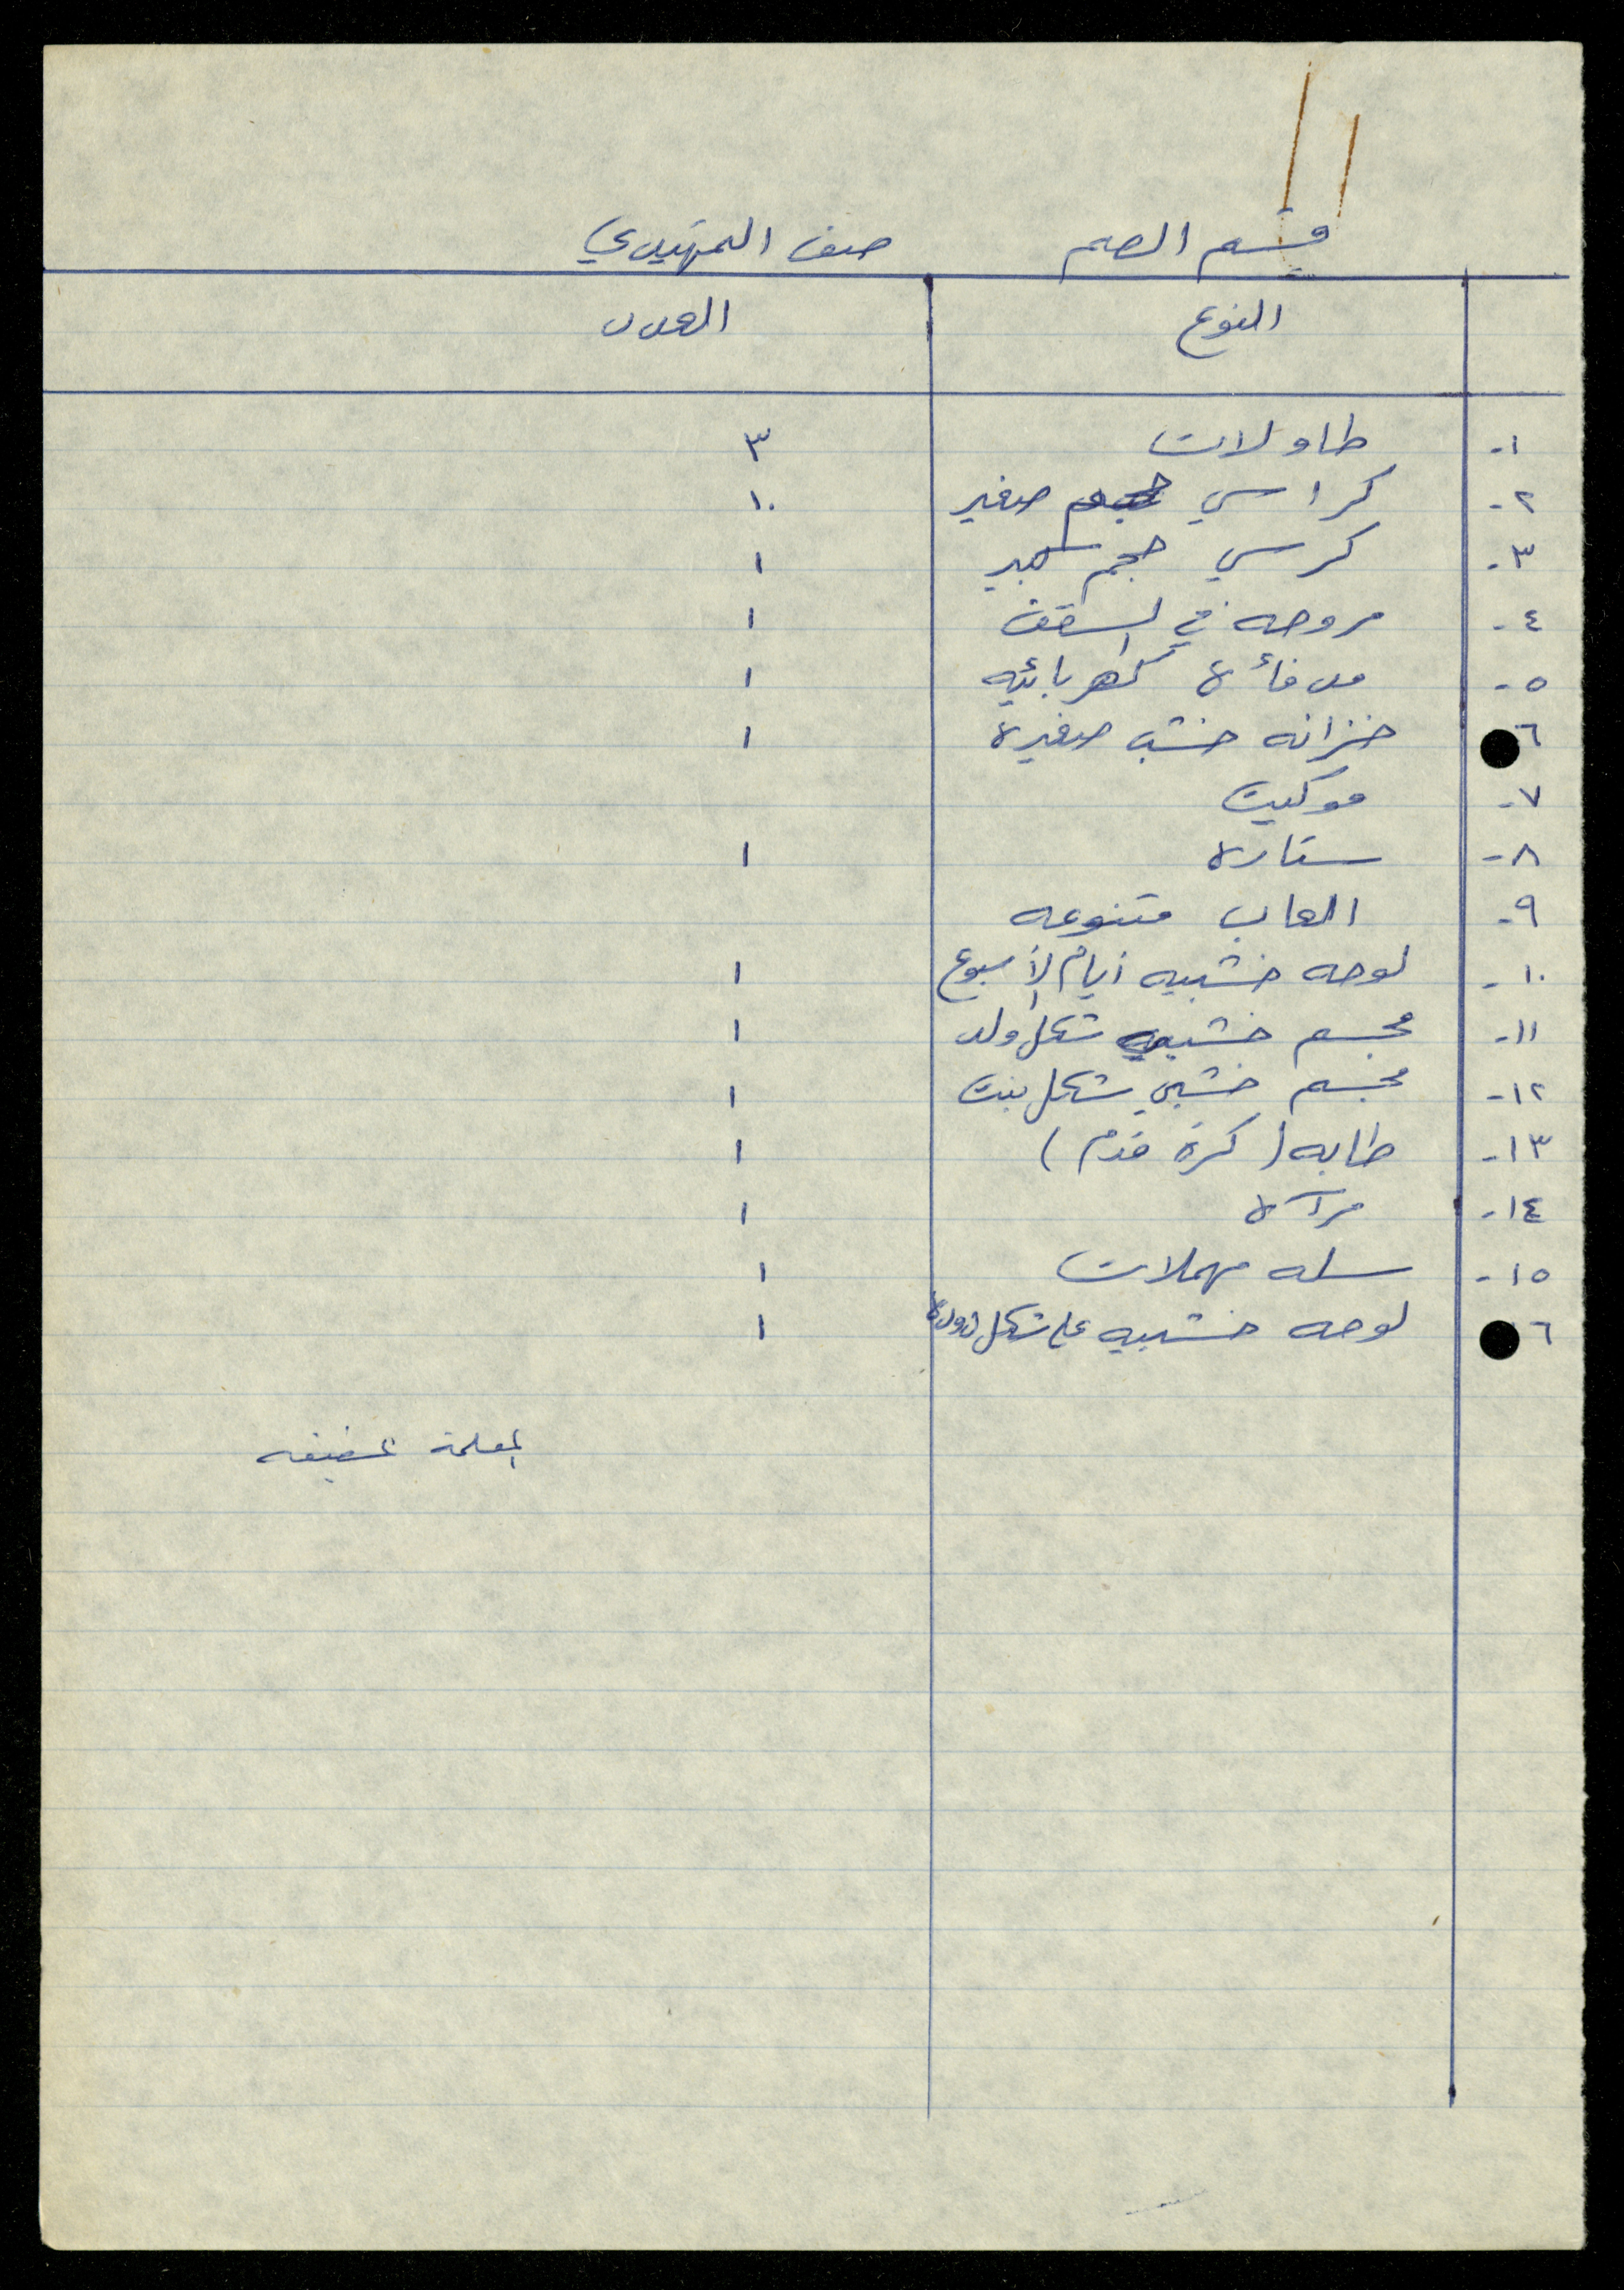 قسم الصم صف التمهيدي
النوع العدد
١- طاولات ٣
٢- كراسي حجم صغير ١٠
٣- كرسي حجم كبير ١
٤- مروحه في السقف ١
٥- مدفأة كهربائيه ١
٦ خزانه خشب صغيرة ١
٧- موكيت
٨- ستارة ١
٩- العاب متنوعه
١٠- لوحه خشبيه أيام الأسبوع ١
١١- مجسم خشبي شكل ولد ١
١٢- مجسم خشبي شكل بنت ١
١٣- طابه (كرة قدم) ١
١٤- مرآة ١
١٥- سله مهملات ١
٦ لوحه خشبيه على شكل دودة ١
المعلمة